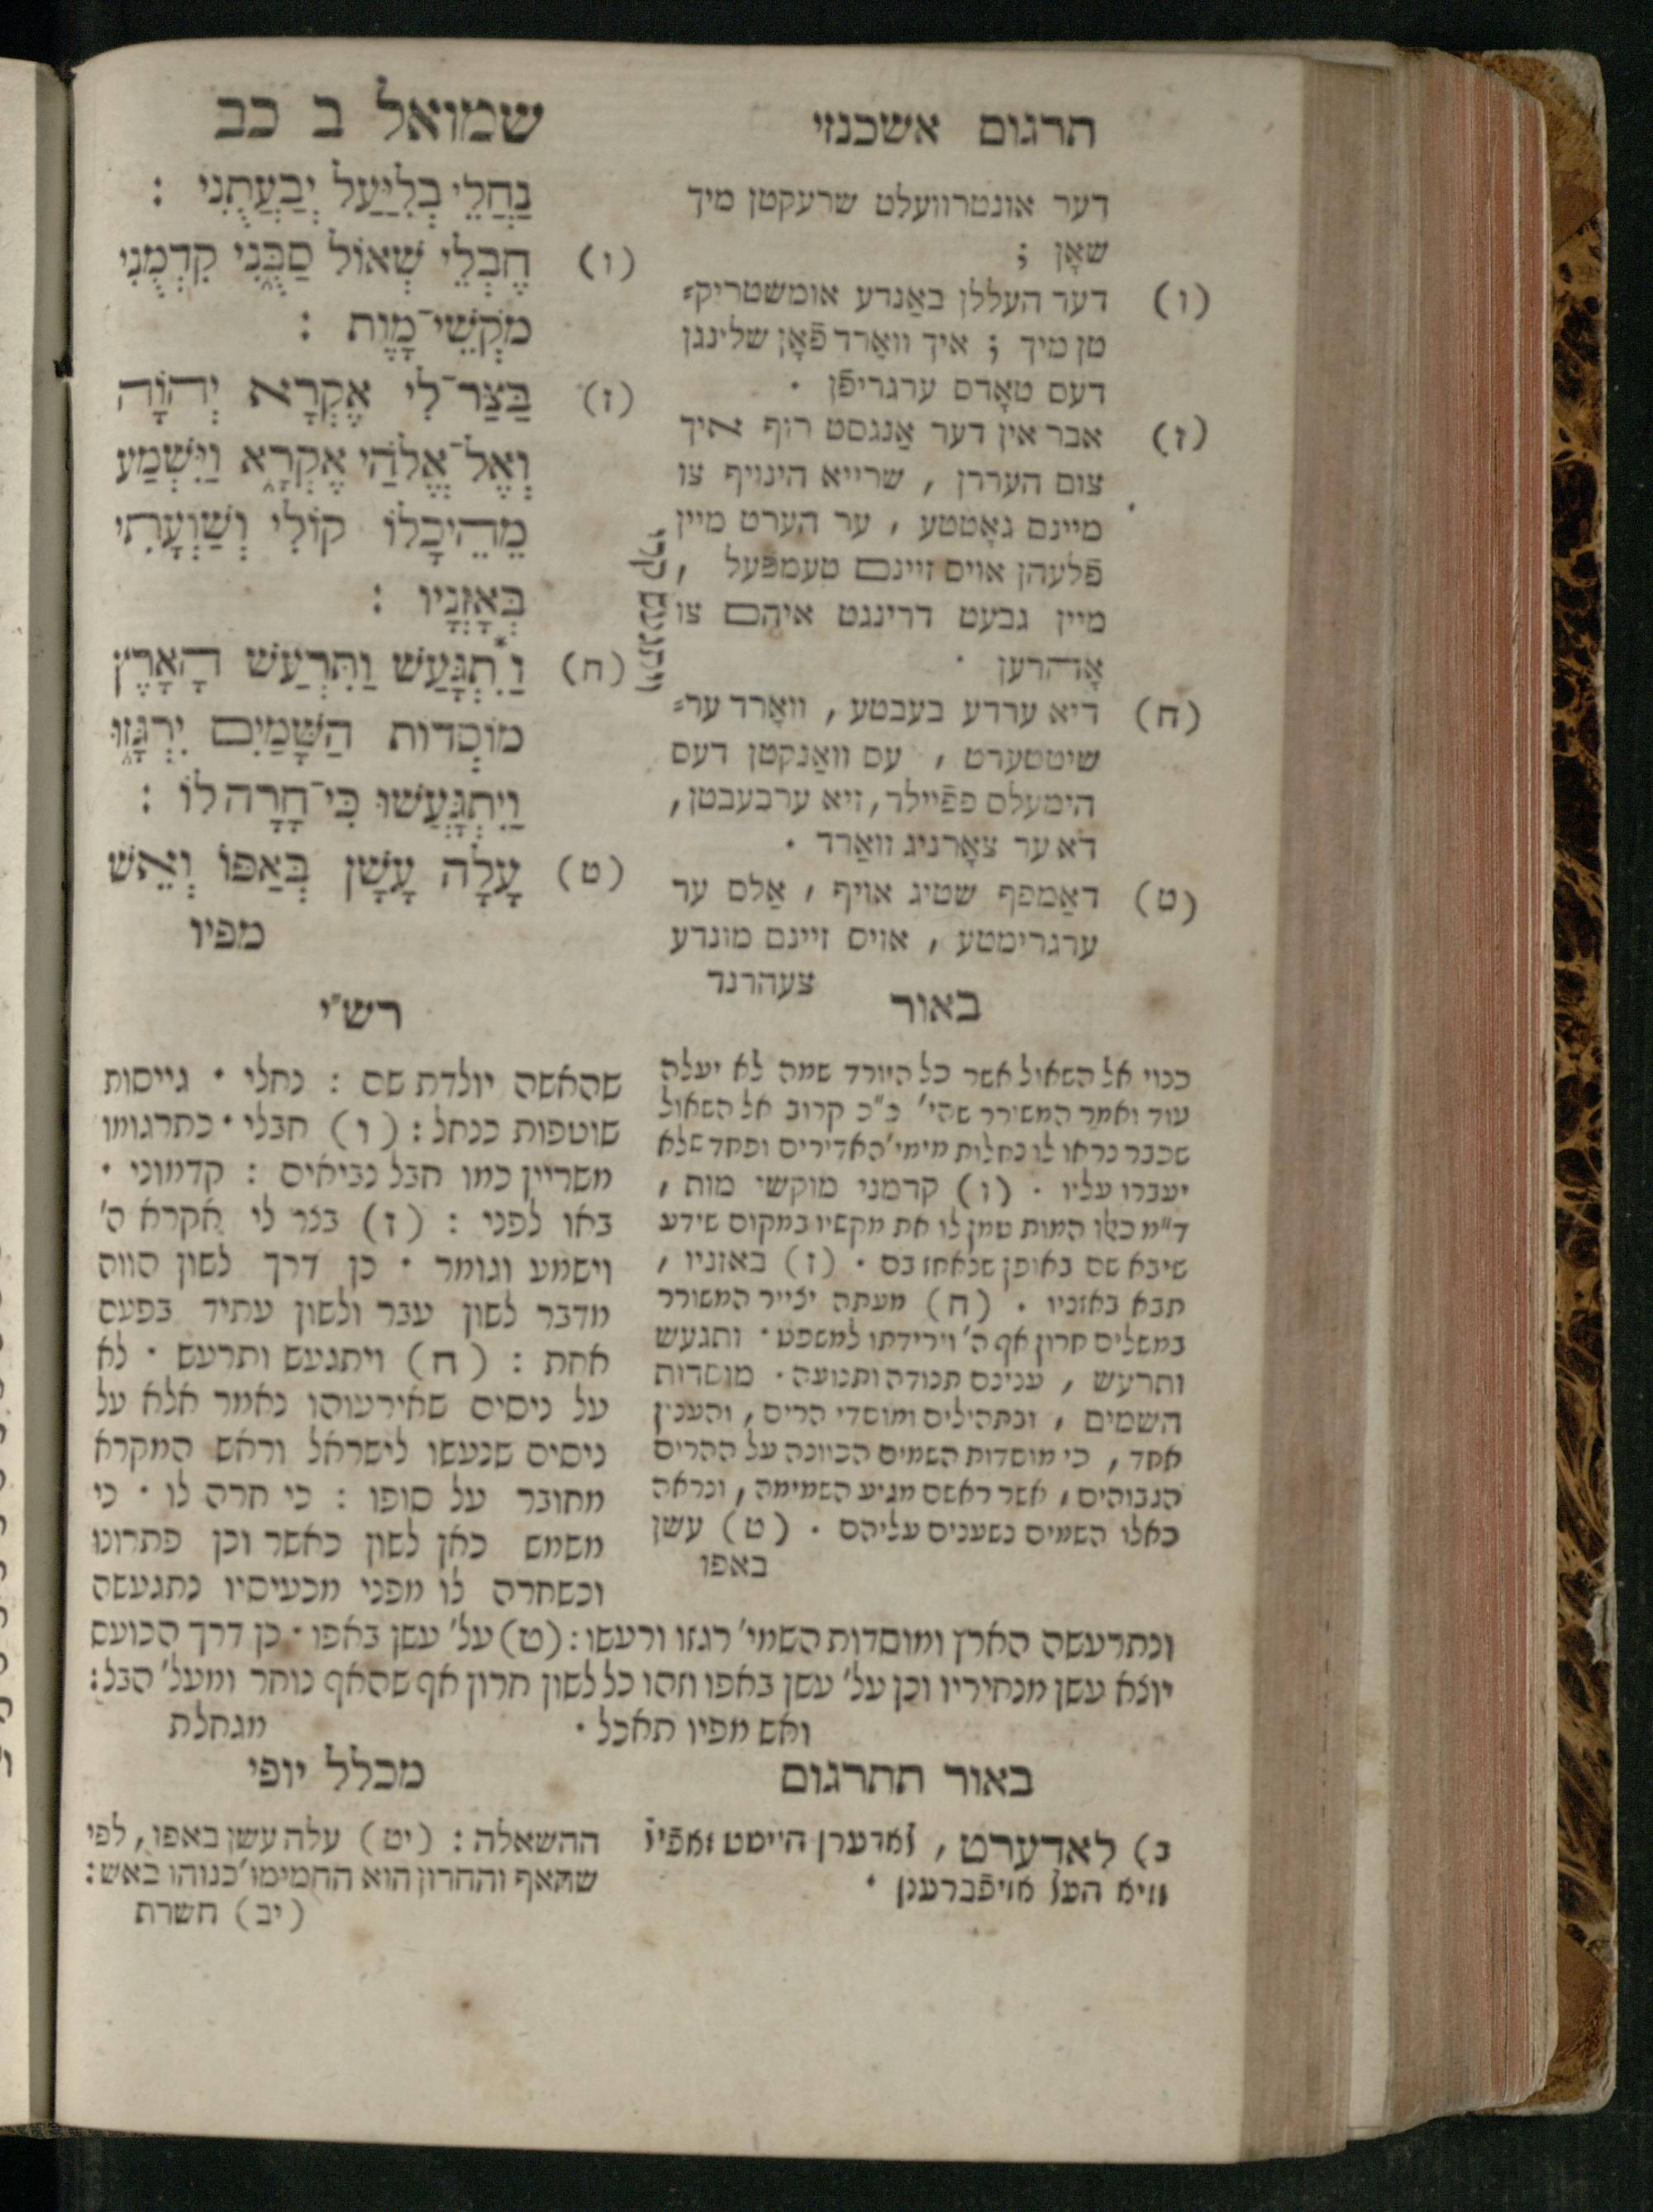 תרגום אשכנזי
שמואל ב כב
נַחֲלֵי בְלִיַּעַל יְבַעֲתֻנִי :
(ו) חֶבְלֵי שְׁאוֹל סַבֻּנִי קִדְּמֻנִי
מֹקְשֵׁי־מָוֶת :
(ז) בַּצַּר־לִי אֶקְרָא יְהוָֹה
וְאֶל־אֱלֹהַי אֶקְרָא וַיִּשְׁמַע
מֵהֵיכָלוֹ קוֹלִי וְשַׁוְעָתִי
בְּאָזְנָיו :
(ח) וַ֯תִּגְעַשׁ וַתִּרְעַשׁ הָאָרֶץ
מוֹסְדוֹת הַשָּׁמַיִם יִרְגָּזוּ
וַיִּתְגָּעֲשׁוּ כִּי־חָרָה לוֹ :
(ט) עָלָה עָשָׁן בְּאַפּוֹ וְאֵשׁ
מפיו
ויתגעש קרי
דער אונטרוועלט שרעקטן מיך
שאָן ;
(ו) דער העללן באַנדע אומשטריק⸗
טן מיך ; איך וואָרד פֿאָן שלינגן
דעס טאָדס ערגריפֿן .
(ז) אבר אין דער אַנגסט רוף איך
צום העררן , שרייא הינויף צו
מיינם גאָטטע , ער הערט מיין
פֿלעהן אויס זיינם טעמפּעל ,
מיין גבעט דרינגט איהם צו
אָהרען .
(ח) דיא ערדע בעבטע , וואָרד ער⸗
שיטטערט , עס וואַנקטן דעס
הימעלס פפֿיילר , זיא ערבעבטן ,
דאער צאָרניג וואַרד .
(ט) דאַמפף שטיג אויף , אַלס ער
ערגרימטע , אויס זיינם מונדע
צעהרנד
באור
כנוי אל השאול אשר כל היורד שמה לא יעלה
עוד ואמר המשורר שהי' כ"כ קרוב אל השאול
שכבר נראו לו נחלות מימי' האדירים ופחד שלא
יעברו עליו . (ו) קדמני מוקשי מות ,
ד"מ כאלו המות טמן לו את מקשיו במקום שידע
שיבא שם באופן שנאחז בם . (ז) באזניו ,
תבא באזניו . (ח) מעתה יצייר המשורר
במשלים חרון אף ה' וירידתו למשפט . ותגעש
ותרעש , ענינם תנודה ותנועה . מוסדות
השמים , ובתהילים ומוסדי הרים , והענין
אחד , כי מוסדות השמים הכוונה על ההרים
הגבוהים , אשר ראשם מגיע השמימה , ונראה
כאלו השמים נשענים עליהם . (ט) עשן
באפו
רש"י
שהאשה יולדת שם : נחלי . גייסות
שוטפות כנחל : (ו) חבלי . כתרגומו
משריין כמו חבל נביאים : קדמוני .
באו לפני : (ז) בצר לי אקרא ה'
וישמע וגומר . כן דרך לשון הווה
מדבר לשון עבר ולשון עתיד בפעם
אחת : (ח) ויתגעש ותרעש . לא
על ניסים שאירעוהו נאמר אלא על
ניסים שנעשו לישראל וראש המקרא
מחובר על סופו : כי חרה לו . כי
משמש כאן לשון כאשר וכן פתרונו
וכשחרה לו מפני מכעיסיו נתגעשה
ונתרעשה הארץ ומוסדות השמי' רגזו ורעשו : (ט) על' עשן באפו . כן דרך הכועס
יוצא עשן מנחיריו וכן על' עשן באפו וזהו כל לשון חרון אף שהאף נוחר ומעל' הבל :
ואש מפיו תאכל .
מגחלת
באור התרגום
ב) לאדערט , לאדערן הייסט זאפֿיל
וויא העל אויפֿברענן .
מכלל יופי
ההשאלה : (יט) עלה עשן באפו , לפי
שהאף והחרון הוא החמימו' כנוהו באש :
(יב) חשרת